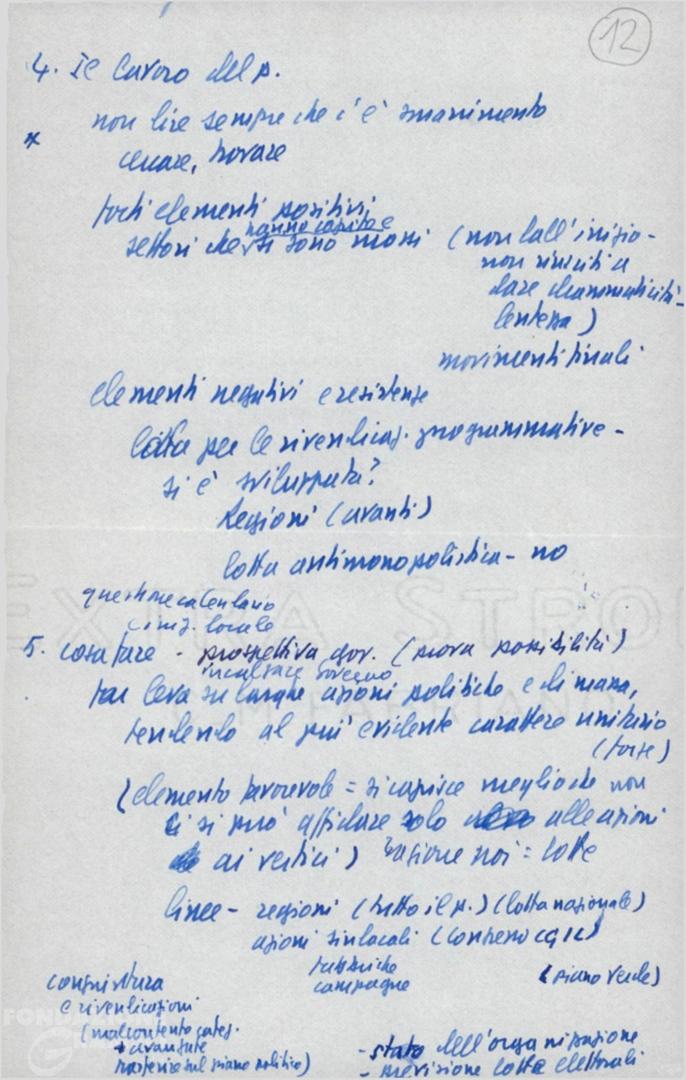 12
4. Il lavoro del p.
non dire sempre che c'è smarrimento
*
cercare, trovare
forti elementi positivi
hanno capito e
settori che si sono mossi (non dall'inizio -
non riusciti a
dare drammaticità -
lentezza)
movimenti finali
elementi negativi e resistenze
lotta per le rivendicaz. programmatiche -
si è sviluppata?
Regioni (avanti)
lotta antimonopolistica - no
questione calendario
cong. locale
5. cosa fare - prospettiva gov. (nuova possibilità)
incalzare governo
far leva su larghe azioni politiche e di massa,
tendendo al più evidente carattere unitario
(forse)
(elemento favorevole = si capisce meglio che non
ci si può affidare solo alle azioni
ai vertici) ragione noi = lotte
linee - regioni (tutto il p.) (lotta nazionale)
azioni sindacali (Congresso CGIL)
fabbriche
campagne
(piano verde)
congiuntura
e rivendicazioni
(malcontento categ.
+ avanzate
trasferire sul piano politico)
- stato dell'organizzazione
- previsione lotte elettorali
EXTRA STRO
C.M. FABRIANO
FONDAZIONE
G